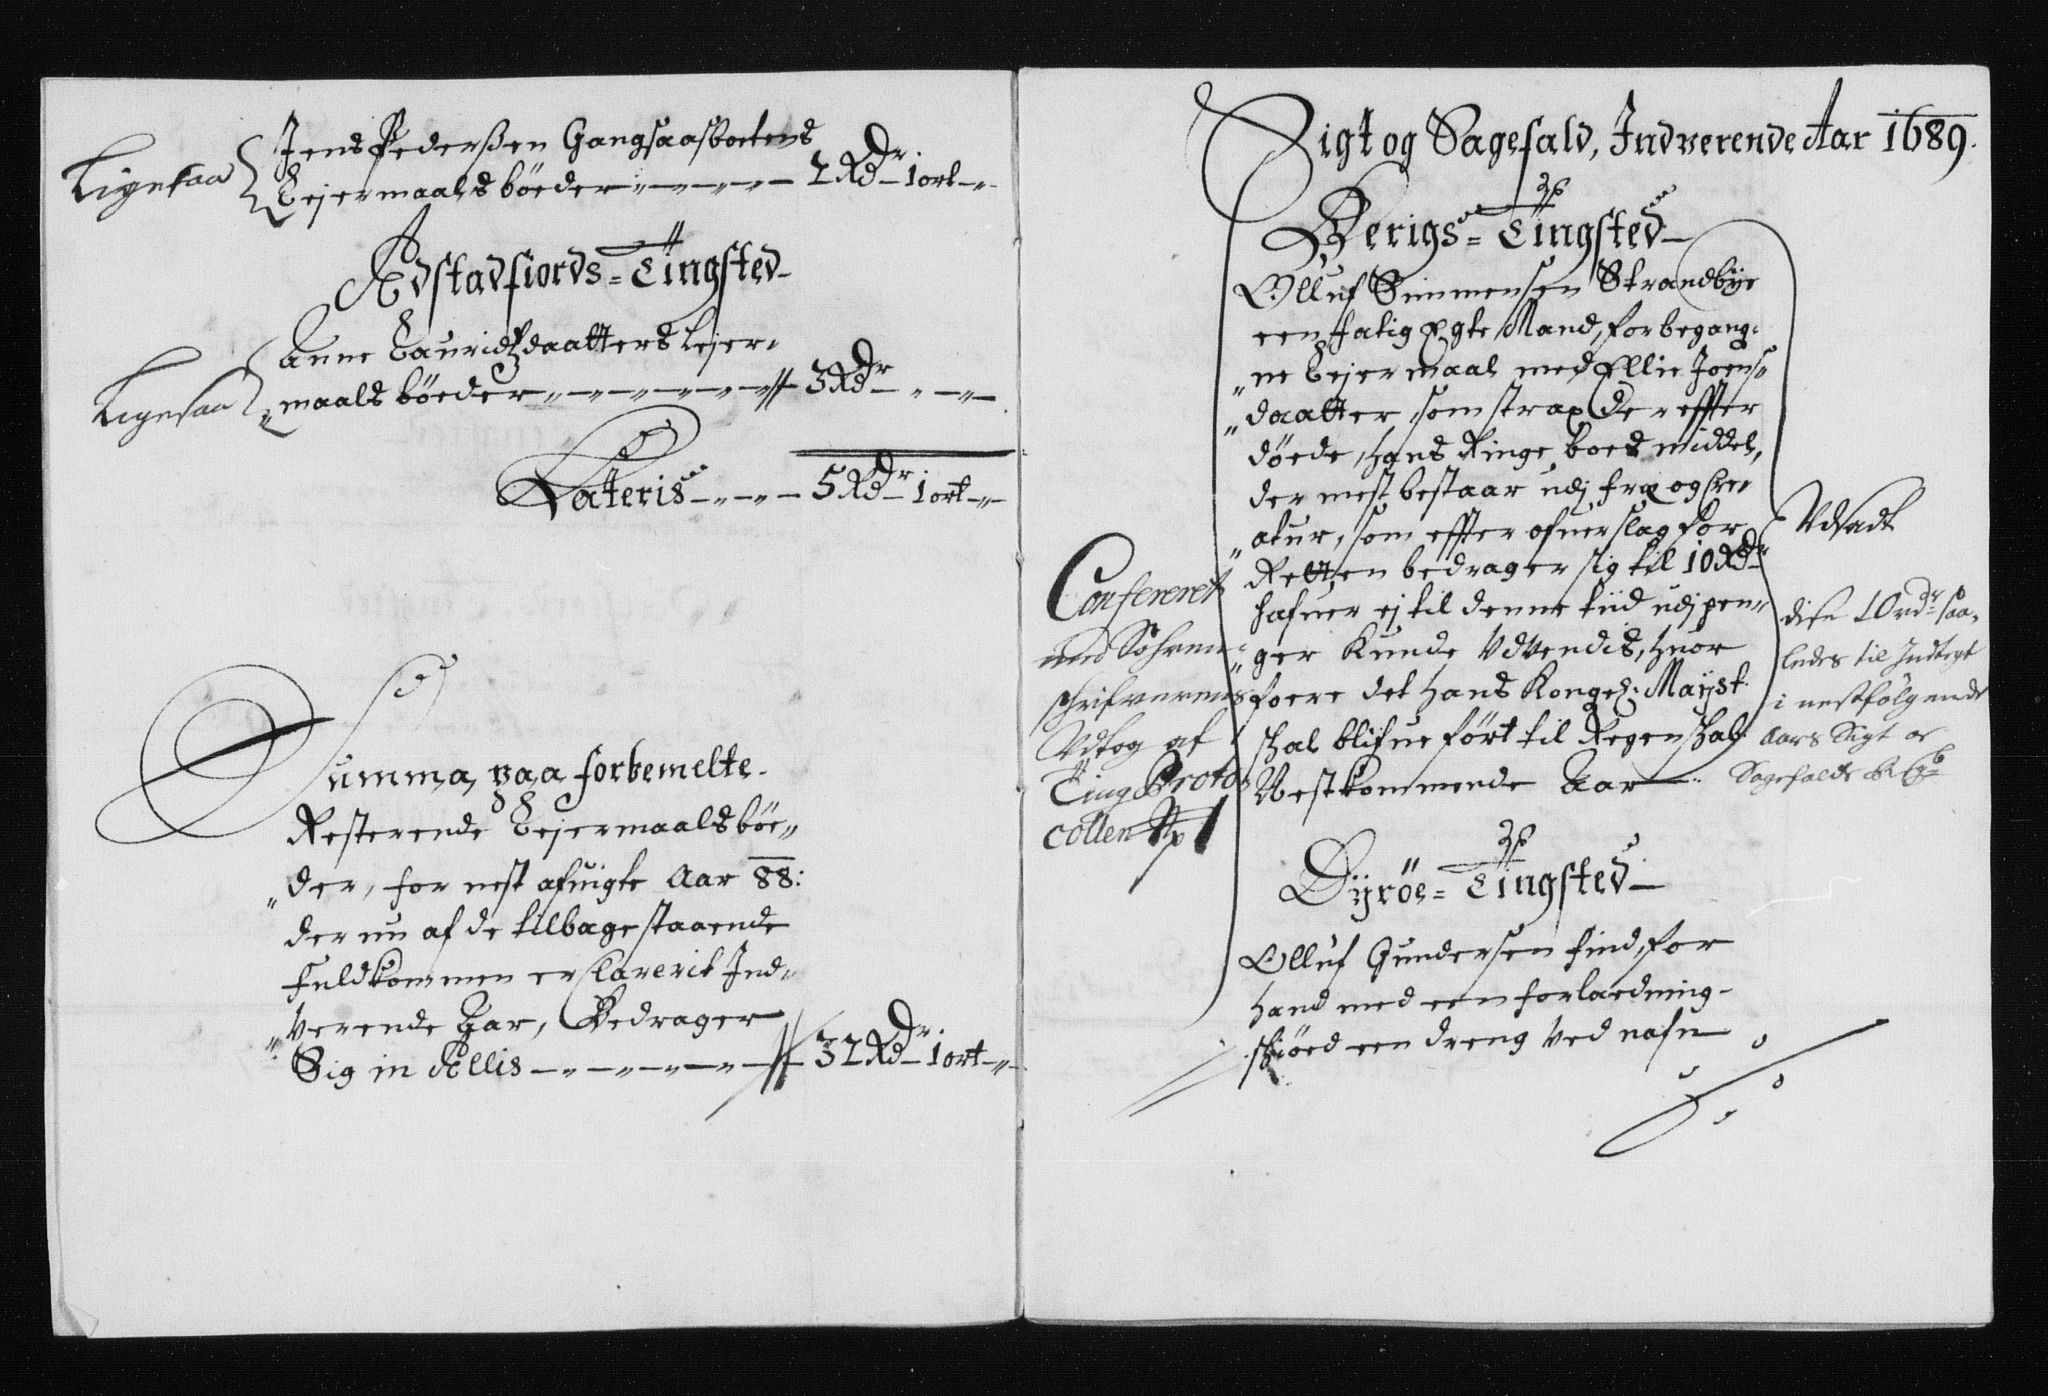 Ligesaa
Jens Pederßen Gangsaasbotens
Lejermaals böeder 2 Rdr 1 ort
Astadfiords= Tingsted
Ligesaa
Anne Lauridtzdaatters Lejer-
maals böeder 3 Rdr
Lateris 5 Rdr 1 ort
Summa, paa forbemelte
Resterende Lejermaalsböe-
der, for nest afvigte Aar 88:
der nu af de tilbagestaaende
fuldkommen er Clarerit Ind-
verende Aar, Bedrager
Sig in Allis 32 Rdr 1 ort
Sigt og Sagefald, Indverende Aar 1689.
Berigs= Tingsted
Olluf Simmensen Strandbye
een fatig Egte Mand, for begang-
ne Lejermaal med Ellie Joens-
daatter, som strax der effter
döede, hans Ringe boes middel,
der mest bestaar udj fræ og Cre-
atur, som effter ofuerslag for
Retten bedrager sig til 10 Rdr
hafuer ej til denne tiid udj pen-
ger kunde Udvendis, huor
foere det hans Kongel: Mayst.
skal blifue fört til Regenskab
Nestkommende Aar
Confereret
med Sohren-
schrifverens
Udtog af
Ting Proto-
collen
Udsadt
dise 10 rdr saa-
ledes til Indtegt
i nestfölgende
Aars Sigt oc
Sagefalds
Dyröe= Tingsted
Olluf Gundersen find, for
hand med een forlaedning-
skiöed een dreng ved nafn